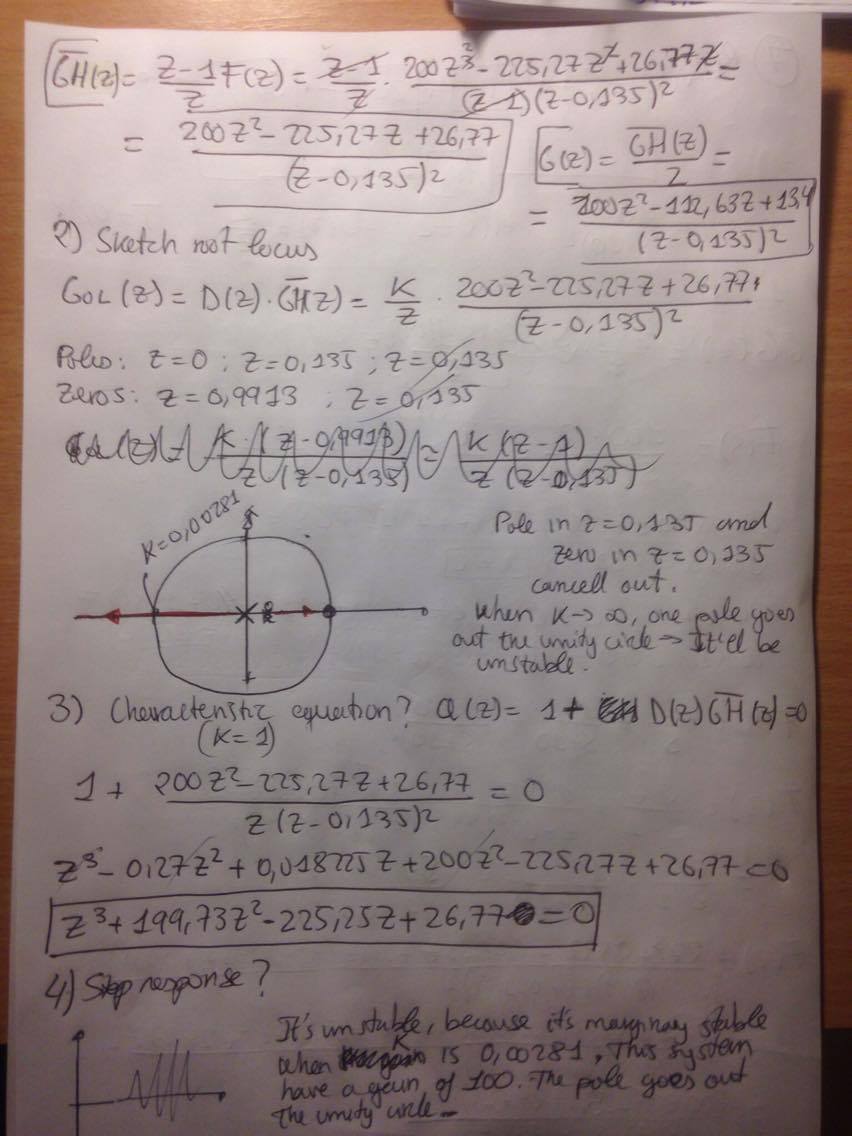 G̅H̅(z) = z-1/z F(z) = z-1/z · 200z³ - 225,27z² + 26,77z / (z-1)(z-0,135)² =
= 200z² - 225,27z + 26,77 / (z-0,135)²
G(z) = G̅H̅(z)/2 =
= 100z² - 112,63z + 13,4 / (z-0,135)²
2) Sketch root locus
GOL(z) = D(z)·G̅H̅z) = K/z · 200z² - 225,27z + 26,77 / (z-0,135)²
Poles: z=0 ; z=0,135 ; z=0,135
Zeros: z=0,9913 ; z=0,135
(z) = K·(z-0,9913) / z(z-0,135) = K(z-1) / z(z-0,135)
K=0,00281
Pole in z=0,135 and
zero in z=0,135
cancell out.
when K→∞, one pole goes
out the unity circle → It'll be
unstable.
3) Characteristic equation? Q(z) = 1 + D(z)G̅H̅(z)=0
(K=1)
1 + 200z² - 225,27z + 26,77 / z(z-0,135)² = 0
z³ - 0,27z² + 0,018225z + 200z² - 225,27z + 26,77 = 0
z³ + 199,73z² - 225,25z + 26,77 = 0
4) Step response?
It's unstable, because it's marginary stable
when K is 0,00281, This system
have a gain of 100. The pole goes out
the unity circle -